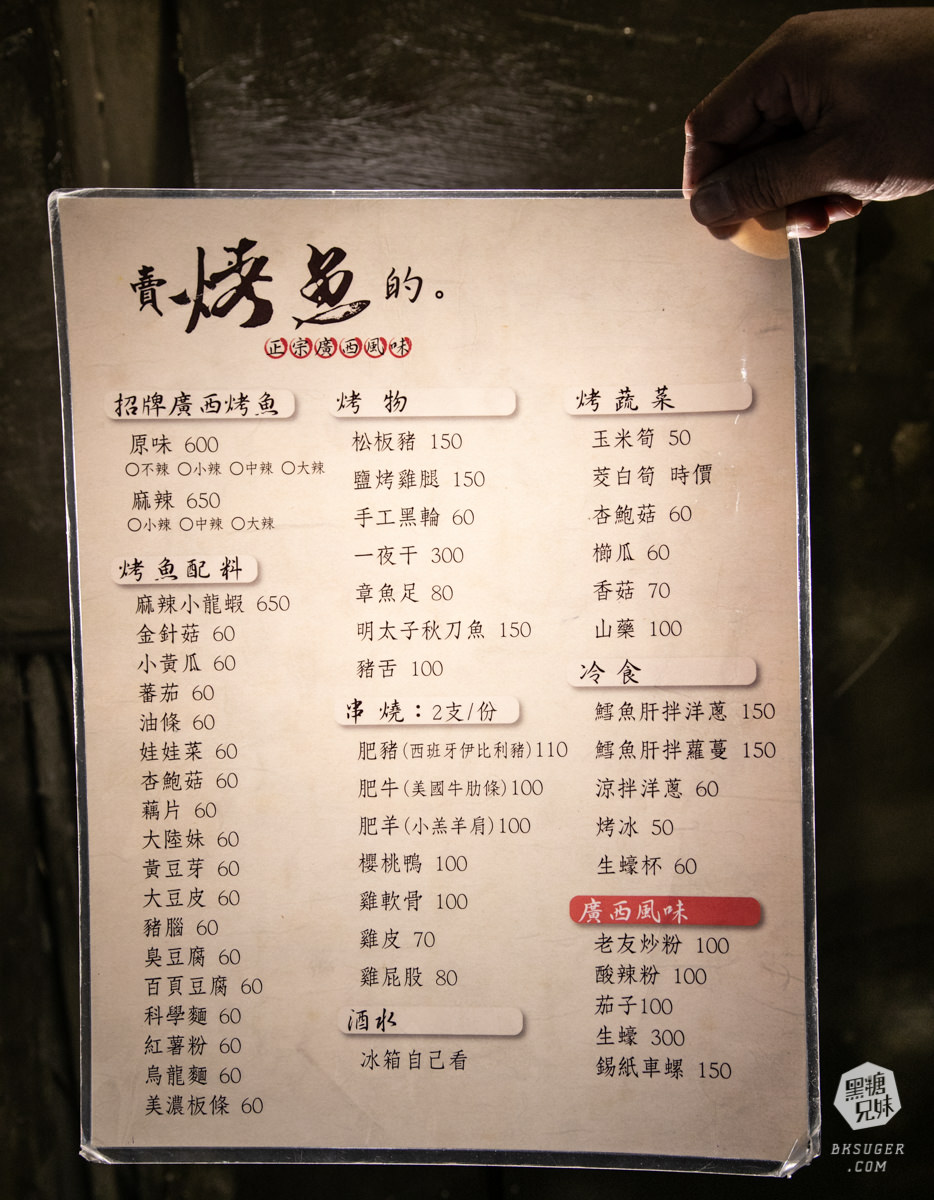 賣烤魚的。
正宗廣西風味
招牌廣西烤魚
原味 600
○不辣 ○小辣 ○中辣 ○大辣
麻辣 650
○小辣 ○中辣 ○大辣
烤魚配料
麻辣小龍蝦 650
金針菇 60
小黃瓜 60
蕃茄 60
油條 60
娃娃菜 60
杏鮑菇 60
藕片 60
大陸妹 60
黃豆芽 60
大豆皮 60
豬腦 60
臭豆腐 60
百頁豆腐 60
科學麵 60
紅薯粉 60
烏龍麵 60
美濃板條 60
烤物
松板豬 150
鹽烤雞腿 150
手工黑輪 60
一夜干 300
章魚足 80
明太子秋刀魚 150
豬舌 100
串燒：2支/份
肥豬(西班牙伊比利豬)110
肥牛(美國牛肋條)100
肥羊(小羔羊肩)100
櫻桃鴨 100
雞軟骨 100
雞皮 70
雞屁股 80
酒水
冰箱自己看
烤蔬菜
玉米筍 50
茭白筍 時價
杏鮑菇 60
櫛瓜 60
香菇 70
山藥 100
冷食
鱈魚肝拌洋蔥 150
鱈魚肝拌蘿蔓 150
涼拌洋蔥 60
烤冰 50
生蠔杯 60
廣西風味
老友炒粉 100
酸辣粉 100
茄子100
生蠔 300
錫紙車螺 150
黑糖
兄妹
BKSUGER
.COM